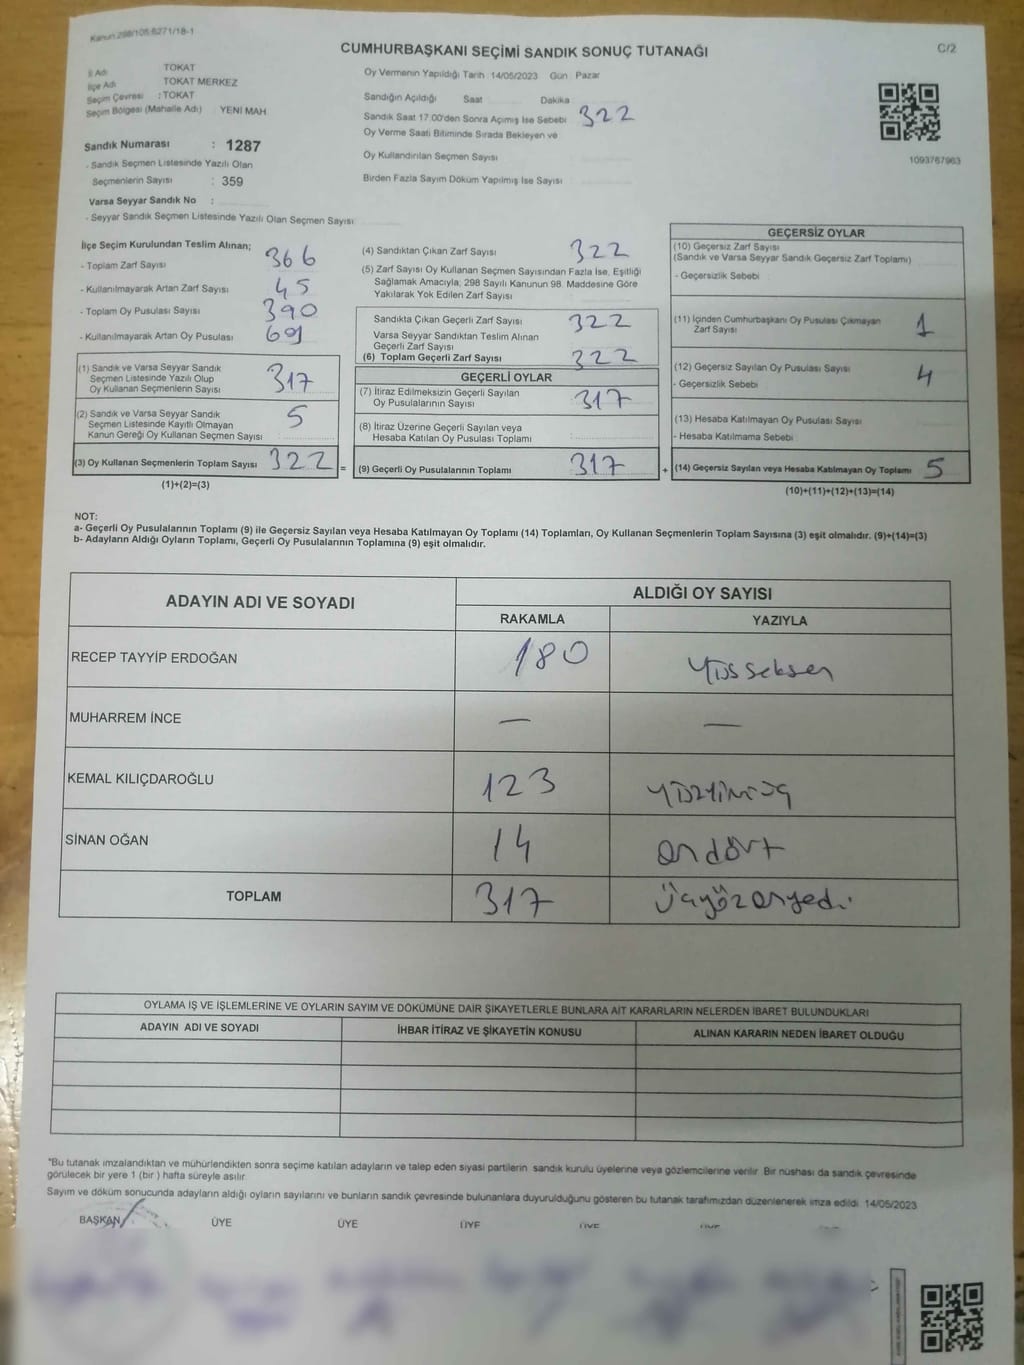 Kanun:298/105;6271/18-1
CUMHURBAŞKANI SEÇİMİ SANDIK SONUÇ TUTANAĞI
C/2
İl Adı TOKAT
İlçe Adı TOKAT MERKEZ
Seçim Çevresi : TOKAT
Seçim Bölgesi (Mahalle Adı) YENİ MAH
Sandık Numarası : 1287
- Sandık Seçmen Listesinde Yazılı Olan
Seçmenlerin Sayısı : 359
Varsa Seyyar Sandık No :
- Seyyar Sandık Seçmen Listesinde Yazılı Olan Seçmen Sayısı
Oy Vermenin Yapıldığı Tarih :14/05/2023 Gün : Pazar
Sandığın Açıldığı Saat Dakika
Sandık Saat 17:00'den Sonra Açımış İse Sebebi
Oy Verme Saati Bitiminde Sırada Bekleyen ve 322
Oy Kullandırılan Seçmen Sayısı
Birden Fazla Sayım Döküm Yapılmış İse Sayısı
1093767963
İlçe Seçim Kurulundan Teslim Alınan;
- Toplam Zarf Sayısı 366
- Kullanılmayarak Artan Zarf Sayısı 45
- Toplam Oy Pusulası Sayısı 390
- Kullanılmayarak Artan Oy Pusulası 69
(1) Sandık ve Varsa Seyyar Sandık
Seçmen Listesinde Yazılı Olup
Oy Kullanan Seçmenlerin Sayısı 317
(2) Sandık ve Varsa Seyyar Sandık
Seçmen Listesinde Kayıtlı Olmayan
Kanun Gereği Oy Kullanan Seçmen Sayısı 5
(3) Oy Kullanan Seçmenlerin Toplam Sayısı 322 =
(1)+(2)=(3)
(4) Sandıktan Çıkan Zarf Sayısı 322
(5) Zarf Sayısı Oy Kullanan Seçmen Sayısından Fazla İse, Eşitliği
Sağlamak Amacıyla, 298 Sayılı Kanunun 98. Maddesine Göre
Yakılarak Yok Edilen Zarf Sayısı
Sandıkta Çıkan Geçerli Zarf Sayısı 322
Varsa Seyyar Sandıktan Teslim Alınan
Geçerli Zarf Sayısı
(6) Toplam Geçerli Zarf Sayısı 322
GEÇERLİ OYLAR
(7) İtiraz Edilmeksizin Geçerli Sayılan
Oy Pusulalarının Sayısı 317
(8) İtiraz Üzerine Geçerli Sayılan veya
Hesaba Katılan Oy Pusulası Toplamı
(9) Geçerli Oy Pusulalarının Toplamı 317 +
GEÇERSİZ OYLAR
(10) Geçersiz Zarf Sayısı
(Sandık ve Varsa Seyyar Sandık Geçersiz Zarf Toplamı)
- Geçersizlik Sebebi
(11) İçinden Cumhurbaşkanı Oy Pusulası Çıkmayan
Zarf Sayısı 1
(12) Geçersiz Sayılan Oy Pusulası Sayısı 4
- Geçersizlik Sebebi
(13) Hesaba Katılmayan Oy Pusulası Sayısı
- Hesaba Katılmama Sebebi
(14) Geçersiz Sayılan veya Hesaba Katılmayan Oy Toplamı 5
(10)+(11)+(12)+(13)=(14)
NOT:
a- Geçerli Oy Pusulalarının Toplamı (9) ile Geçersiz Sayılan veya Hesaba Katılmayan Oy Toplamı (14) Toplamları, Oy Kullanan Seçmenlerin Toplam Sayısına (3) eşit olmalıdır. (9)+(14)=(3)
b- Adayların Aldığı Oyların Toplamı, Geçerli Oy Pusulalarının Toplamına (9) eşit olmalıdır.
ADAYIN ADI VE SOYADI ALDIĞI OY SAYISI
RAKAMLA YAZIYLA
RECEP TAYYİP ERDOĞAN 180 Yüsseksen
MUHARREM İNCE — —
KEMAL KILIÇDAROĞLU 123
SİNAN OĞAN 14 ondört
TOPLAM 317 Üçyüzonyedi
OYLAMA İŞ VE İŞLEMLERİNE VE OYLARIN SAYIM VE DÖKÜMÜNE DAİR ŞİKAYETLERLE BUNLARA AİT KARARLARIN NELERDEN İBARET BULUNDUKLARI
ADAYIN ADI VE SOYADI İHBAR İTİRAZ VE ŞİKAYETİN KONUSU ALINAN KARARIN NEDEN İBARET OLDUĞU
*Bu tutanak imzalandıktan ve mühürlendikten sonra seçime katılan adayların ve talep eden siyasi partilerin sandık kurulu üyelerine veya gözlemcilerine verilir. Bir nushası da sandık çevresinde
görülecek bir yere 1 (bir ) hafta süreyle asılır.
Sayım ve döküm sonucunda adayların aldığı oyların sayılarını ve bunların sandık çevresinde bulunanlara duyurulduğunu gösteren bu tutanak tarafımızdan düzenlenerek imza edildi. 14/05/2023
BAŞKAN ÜYE ÜYE ÜYE ÜYE ÜYE